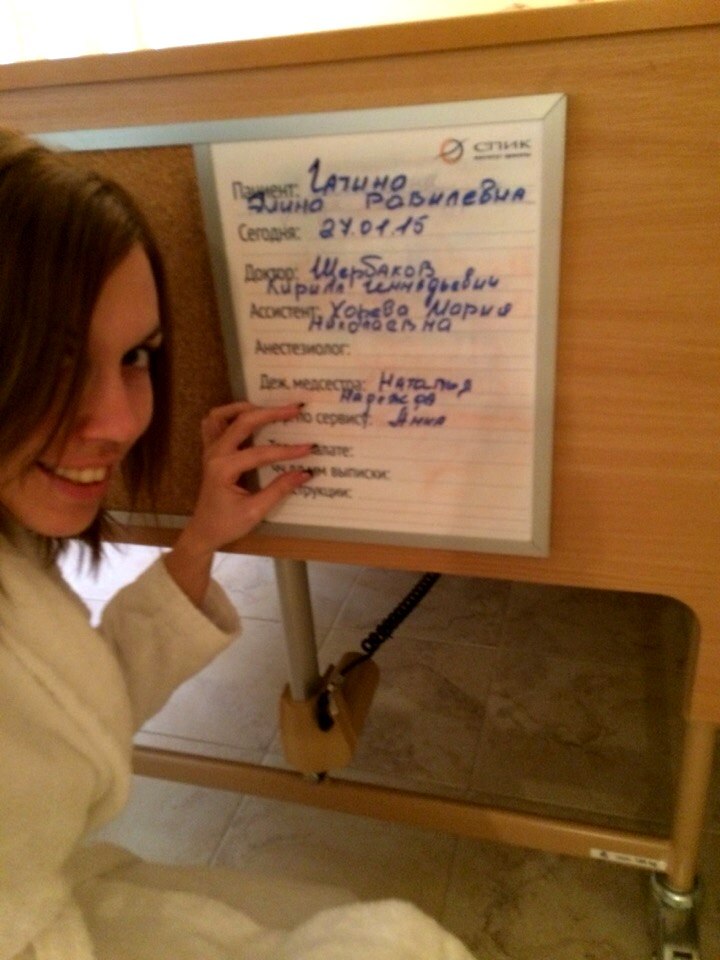 СПИК
Пациент: Гатина
Элина Равилевна
Сегодня: 27.01.15
Доктор: Щербаков
Кирилл Геннадьевич
Ассистент: Хорева Мария
Николаевна
Анестезиолог:
Деж. медсестра: Наталья
Надежда
по сервису: Анна
выписки: